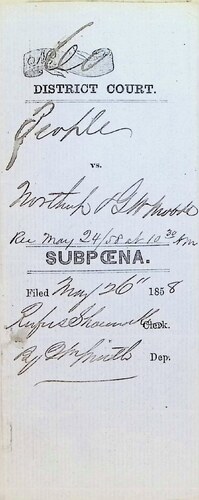 No 60
DISTRICT COURT.
People
vs.
Northup & G W Moore
Rec May 24/58 at 10 30 Am
SUBPŒNA.
Filed May 26" 1858
Rufus Clerk.
By Dep.